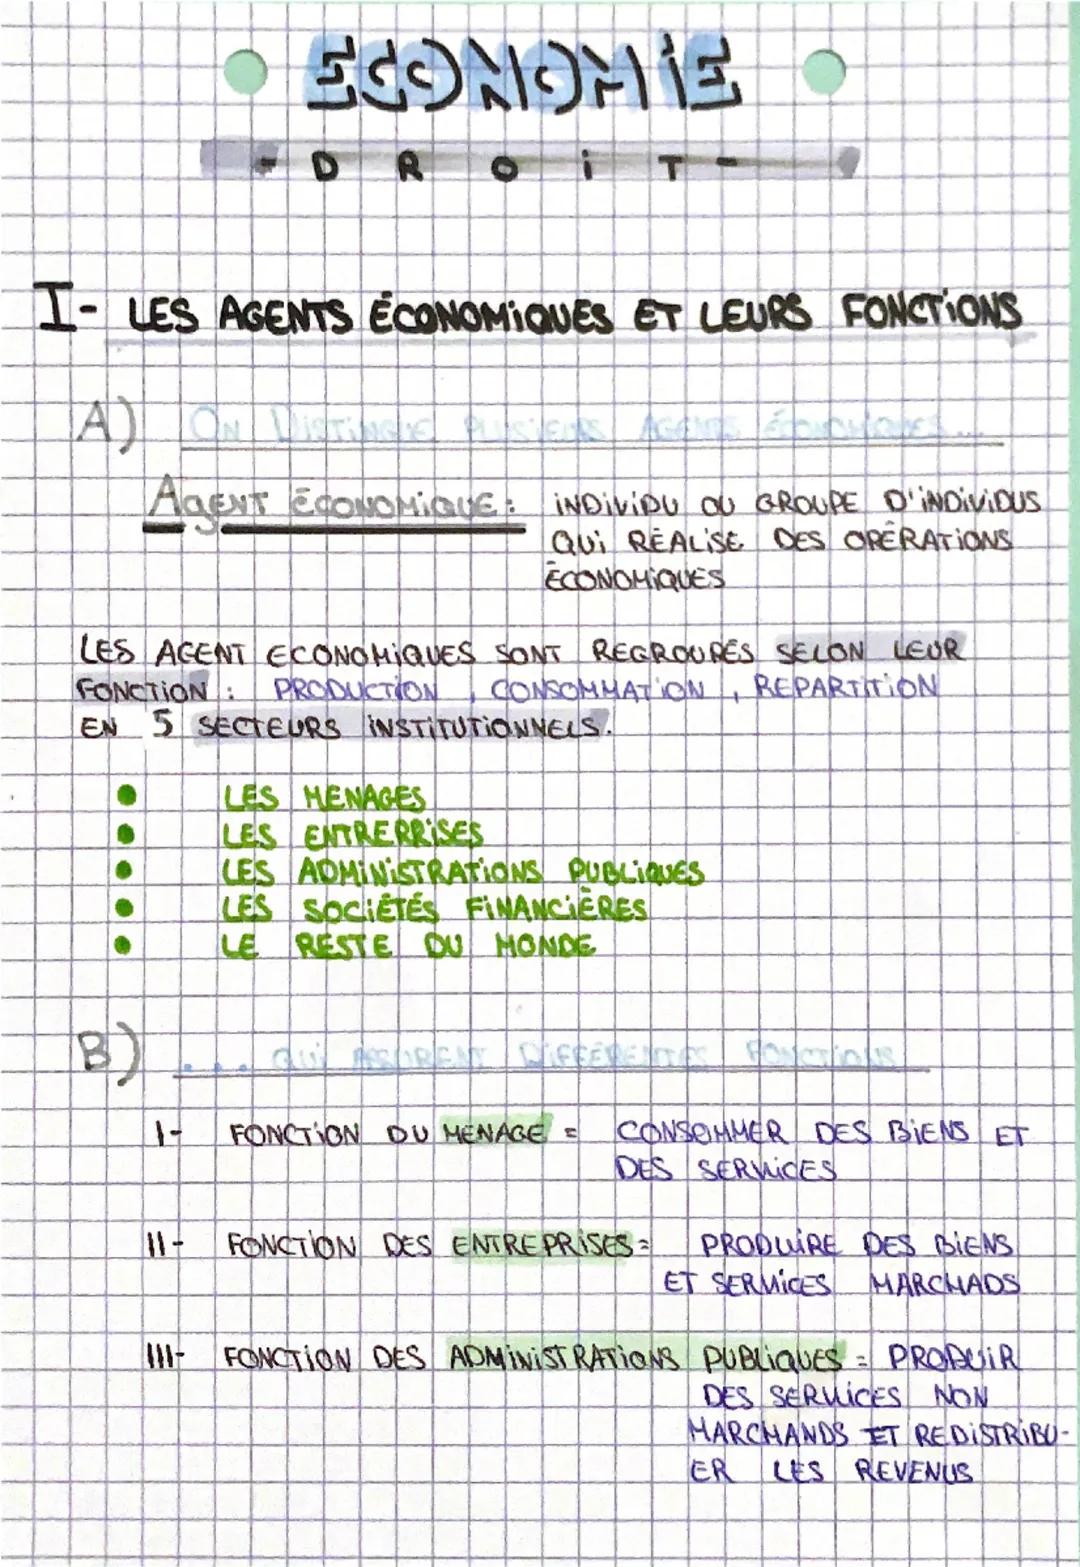 ECONOMIE
- DROIT -
I- LES AGENTS ÉCONOMIQUES ET LEURS FONCTIONS
A) ON DISTINGUE PLUSIEURS AGENTS ÉCONOMIQUES...
AGENT ÉCONOMIQUE : INDIVIDU OU GROUPE D'INDIVIDUS
QUI RÉALISE DES OPÉRATIONS
ÉCONOMIQUES
LES AGENT ECONOMIQUES SONT REGROUPÉS SELON LEUR
FONCTION : PRODUCTION, CONSOMMATION, REPARTITION
EN 5 SECTEURS INSTITUTIONNELS.
• LES MENAGES
• LES ENTREPRISES
• LES ADMINISTRATIONS PUBLIQUES
• LES SOCIÉTÉS FINANCIÈRES
• LE RESTE DU MONDE
B) ... QUI ASSURENT DIFFÉRENTES FONCTIONS
I- FONCTION DU MENAGE = CONSOMMER DES BIENS ET
DES SERVICES
II- FONCTION DES ENTREPRISES = PRODUIRE DES BIENS
ET SERVICES MARCHADS
III- FONCTION DES ADMINISTRATIONS PUBLIQUES = PRODUIR
DES SERVICES NON
MARCHANDS ET REDISTRIBU-
ER LES REVENUS